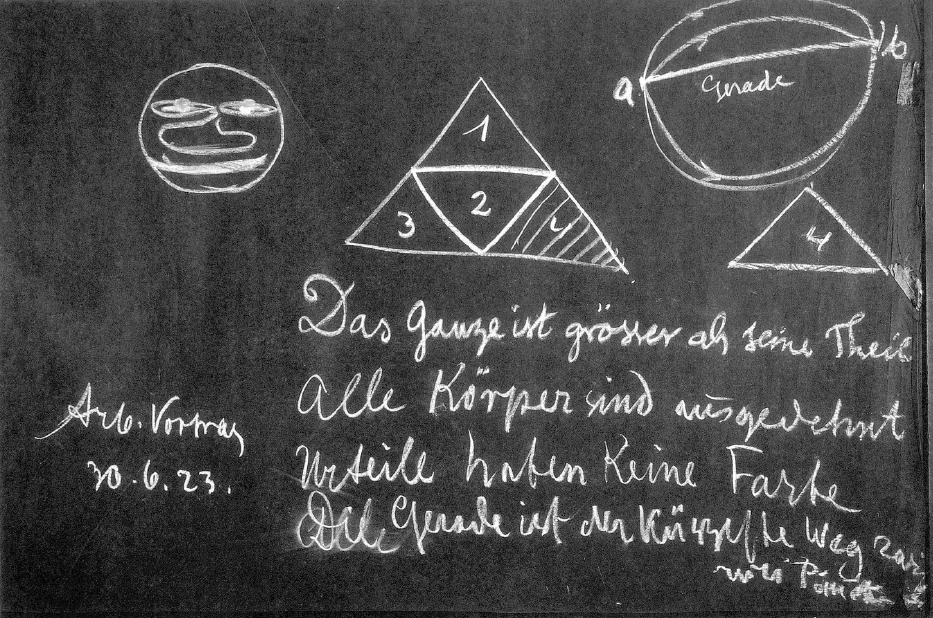 a
b
Gerade
1
3
2
4
4
Das Ganze ist grösser als seine Theil
Alle Körper sind ausgedehnt
Urteile haben Keine Farbe
Die Gerade ist der Kürzeste Weg
Arb. Vortrag
30.6.23.